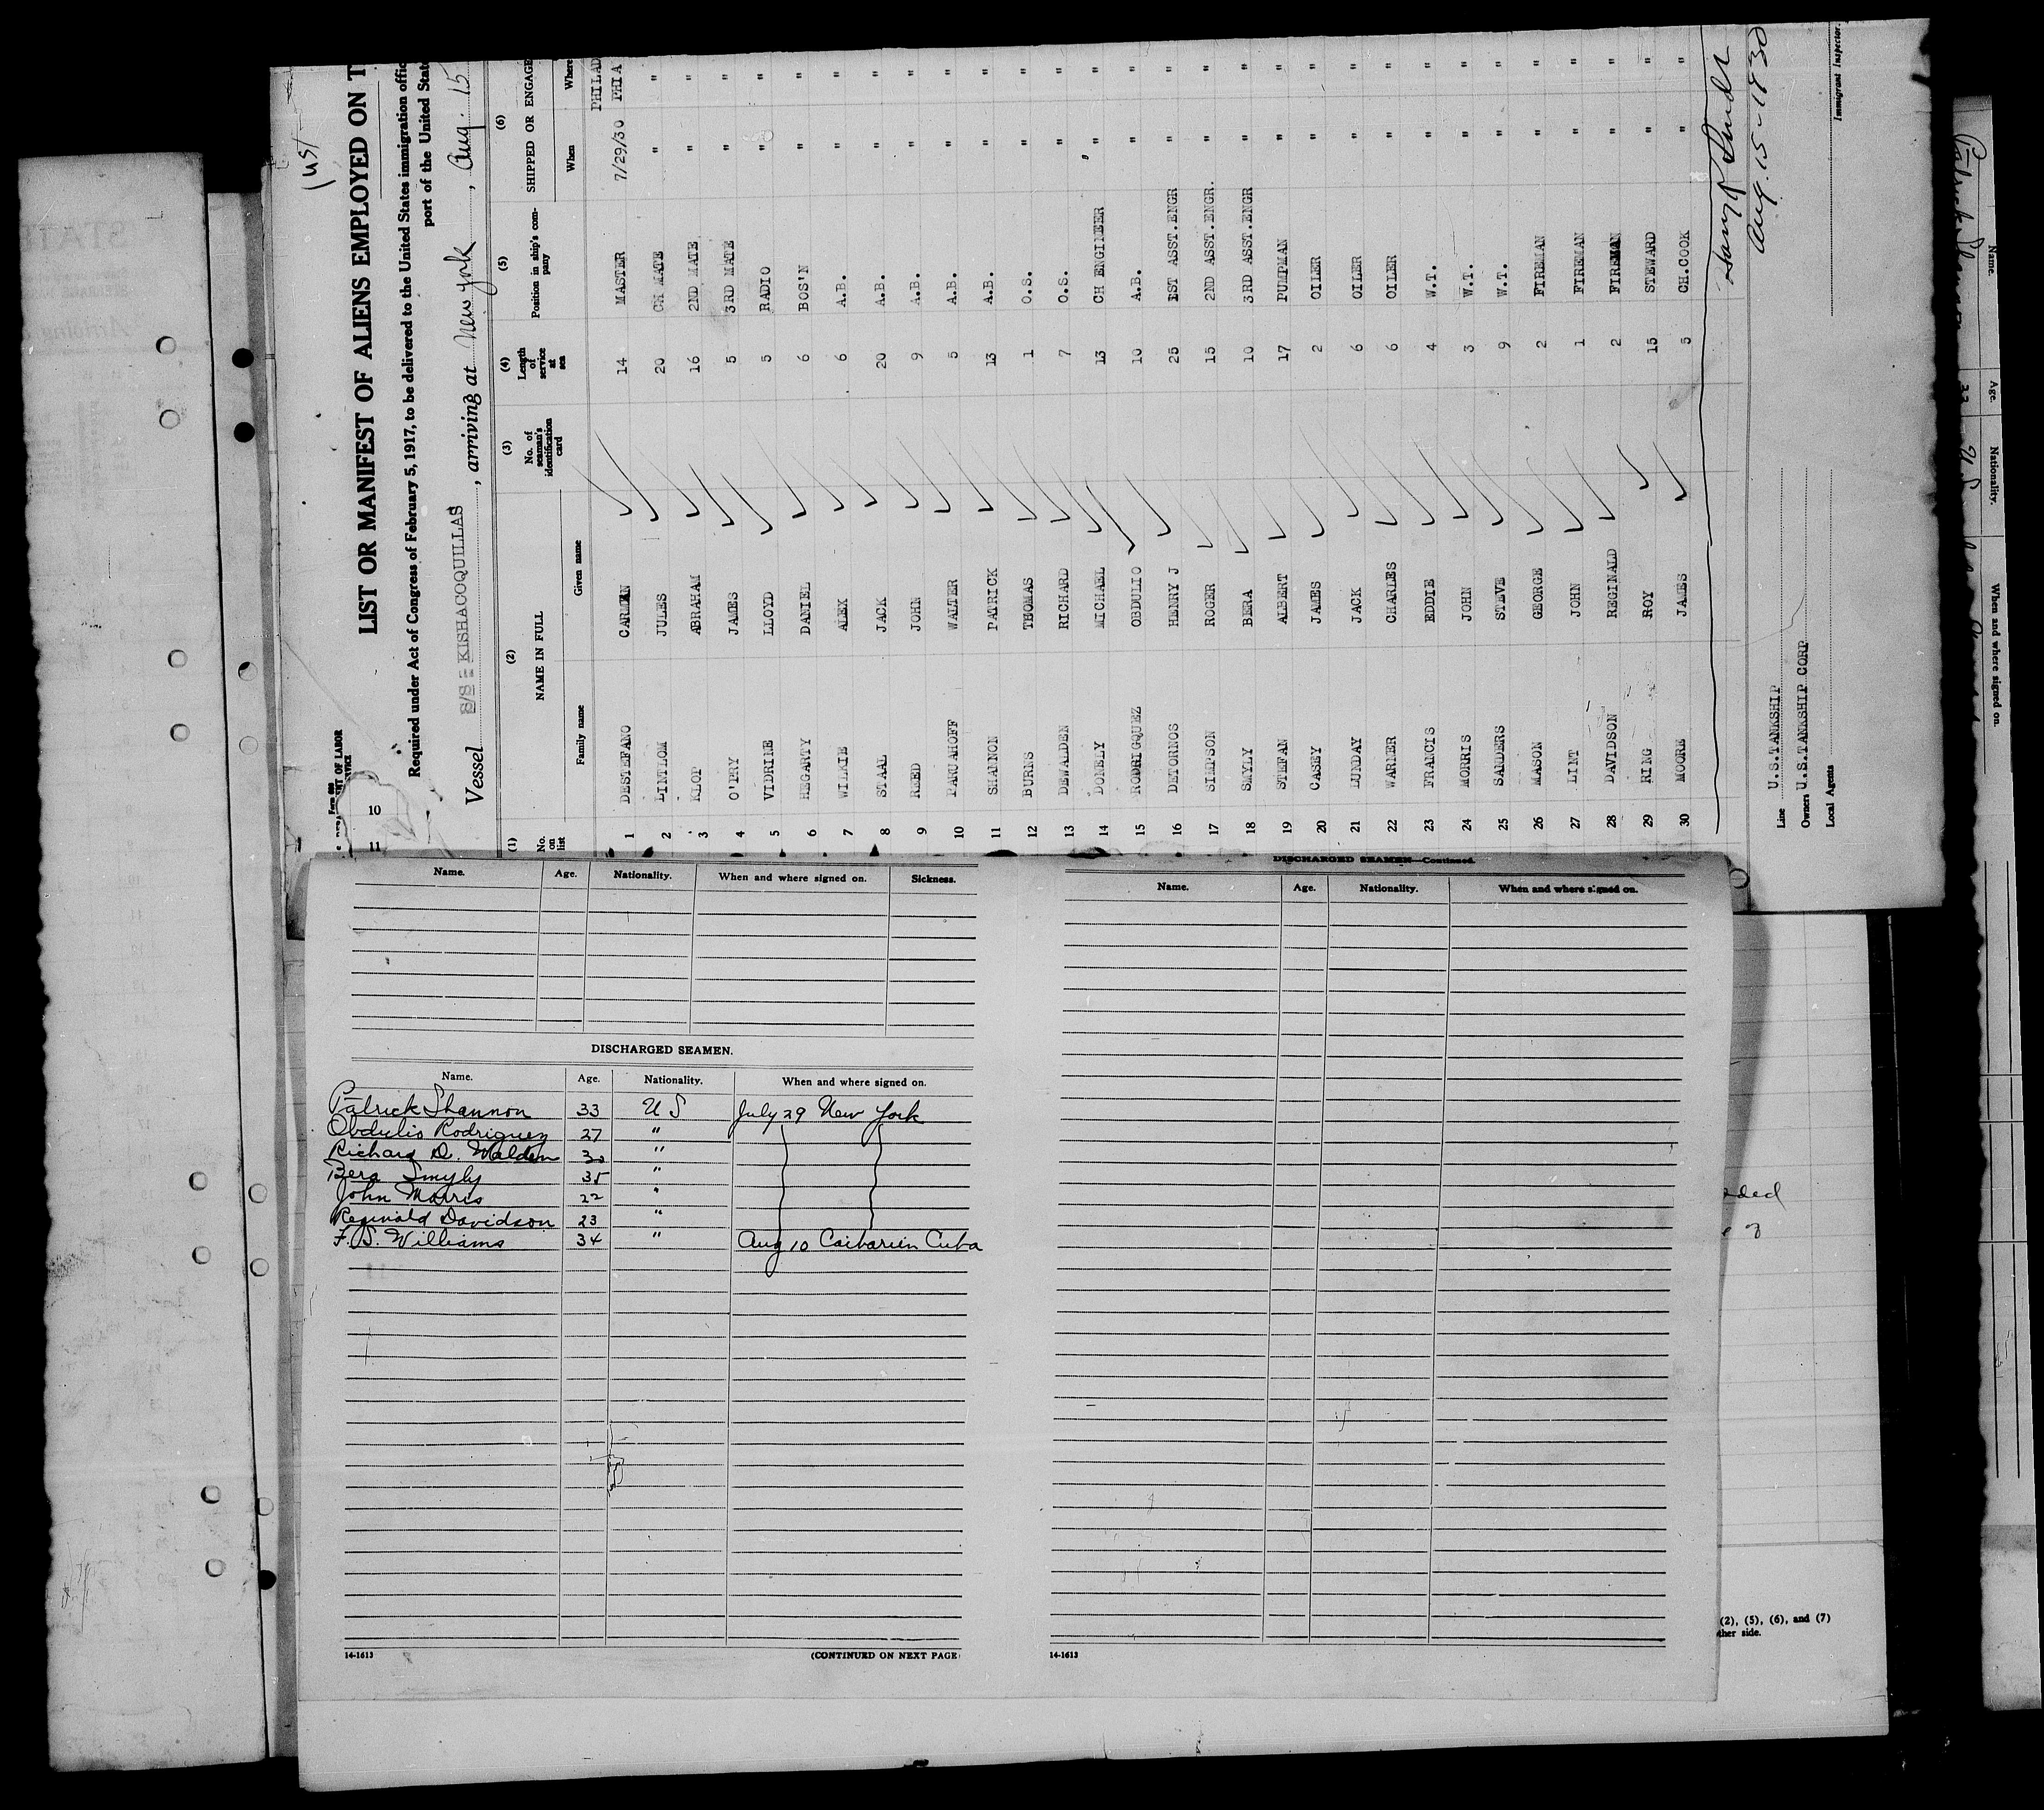 (us)
LIST OR MANIFEST OF ALIENS EMPLOYED ON T
Required under Act of Congress of February 5, 1917, to be delivered to the United States immigration offic
port of the United State
Vessel S/S = KISHACOQUILLAS, arriving at New York, Aug. 15
(1) (2) (3) (4) (5) (6)
No. on list NAME IN FULL No. of seaman's identification card Length of service at sea Position in ship's company SHIPPED OR ENGAGE
Family name Given name When Where
PHILAD
1 DESTEFANO CARMEN 14 MASTER 7/29/30 PHIA
2 LINTLOM JULES 20 CH MATE " "
3 KLOP ABRAHAM 16 2ND MATE " "
4 O'PRY JAMES 5 3RD MATE " "
5 VIDRINE LLOYD 5 RADIO " "
6 HEGARTY DANIEL 6 BOS'N " "
7 WILKIE ALEX 6 A.B. " "
8 STAAL JACK 20 A.B. " "
9 REED JOHN 9 A.B. " "
10 PARUAHOFF WALTER 5 A.B. " "
11 SHANNON PATRICK 13 A.B. " "
12 BURNS THOMAS 1 O.S. " "
13 DEWALDEN RICHARD 7 O.S. " "
14 DONELY MICHAEL 13 CH ENGINEER " "
15 RODRIGQUEZ OBDULIO 10 A.B. " "
16 DETORNOS HENRY J 25 1ST ASST.ENGR " "
17 SIMPSON ROGER 15 2ND ASST.ENGR. " "
18 SMYLY BERA 10 3RD ASST.ENGR " "
19 STEFAN ALBERT 17 PUMPMAN " "
20 CASEY JAMES 2 OILER " "
21 LUNDAY JACK 6 OILER " "
22 WARNER CHARLES 6 OILER " "
23 FRANCIS EDDIE 4 W.T. " "
24 MORRIS JOHN 3 W.T. " "
25 SANDERS STEVE 9 W.T. " "
26 MASON GEORGE 2 FIREMAN " "
27 LINT JOHN 1 FIREMAN " "
28 DAVIDSON REGINALD 2 FIREMAN " "
29 RING ROY 15 STEWARD " "
30 MOORE JAMES 5 CH.COOK " "
Aug. 15-1930
Line U.S.TANKSHIP
Owners U.S.TANKSHIP CORP
Local Agents
Immigrant Inspector.
10
11
Name. Age. Nationality. When and where signed on. Sickness.
DISCHARGED SEAMEN.
Name. Age. Nationality. When and where signed on.
Patrick Shannon 33 U S July 29 New York
Obdulio Rodriguez 27 "
Richard D. Walden 30 "
Bera Smyly 35 "
John Morris 22 "
Reginald Davidson 23 "
F. S. Williams 34 " Aug 10 Caibarien Cuba
14-1613 (CONTINUED ON NEXT PAGE
DISCHARGED SEAMEN—Continued.
Name. Age. Nationality. When and where signed on.
14-1613
(2), (5), (6), and (7)
ther side.
Name. Age. Nationality. When and where signed on.
Patrick Shannon